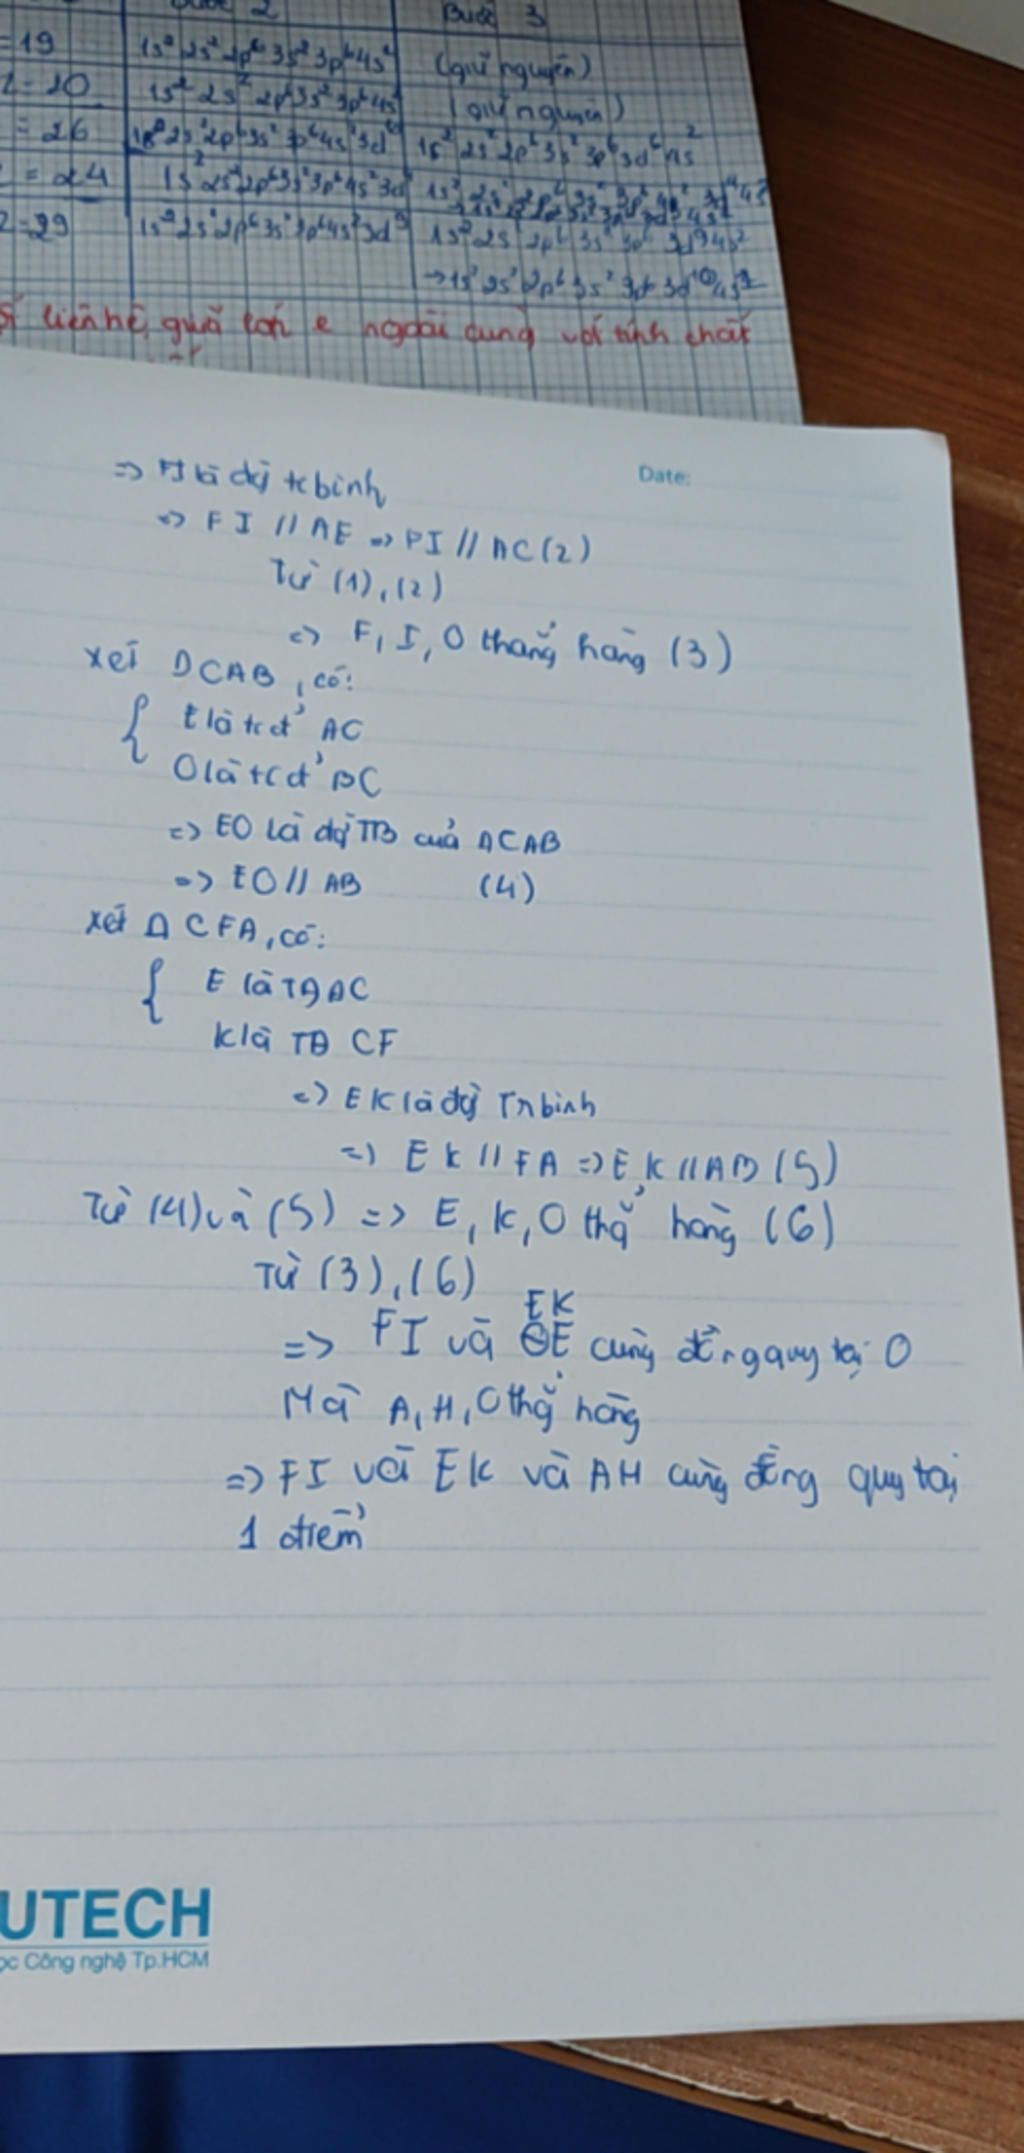 Bước 3
=19 1s² 2s² 2p⁶ 3s² 3p⁶ 4s² (giữ nguyên)
Z=20 1s² 2s² 2p⁶ 3s² 3p⁶ 4s² (giữ nguyên)
= 26 1s² 2s² 2p⁶ 3s² 3p⁶ 4s² 3d⁶ 1s² 2s² 2p⁶ 3s² 3p⁶ 3d⁶ 4s²
= 24 1s² 2s² 2p⁶ 3s² 3p⁶ 4s² 3d⁴
Z=29 1s² 2s² 2p⁶ 3s² 3p⁶ 4s² 3d⁹ 1s² 2s² 2p⁶ 3s² 3p⁶ 3d⁹ 4s²
→ 1s² 2s² 2p⁶ 3s² 3p⁶ 3d¹⁰
liên hệ giữa lớp e ngoài cùng với tính chất
Date:
=> FI là đg tr bình
=> FI // AE => FI // AC (2)
Từ (1), (2)
=> F, I, O thẳng hàng (3)
Xét Δ CAB, có:
{ E là tđ AC
O là tđ BC
=> EO là đg TB của Δ CAB
=> EO // AB (4)
Xét Δ CFA, có:
{ E là TĐ AC
K là TĐ CF
=> EK là đg Tr bình
=> EK // FA => EK // AB (5)
Từ (4) và (5) => E, K, O thẳ hàng (6)
Từ (3), (6)
EK
=> FI và OE cùng đồng quy tại O
Mà A, H, O thẳ hàng
=> FI với EK và AH cùng đồng quy tại
1 điểm
UTECH
ọc Công nghệ Tp.HCM